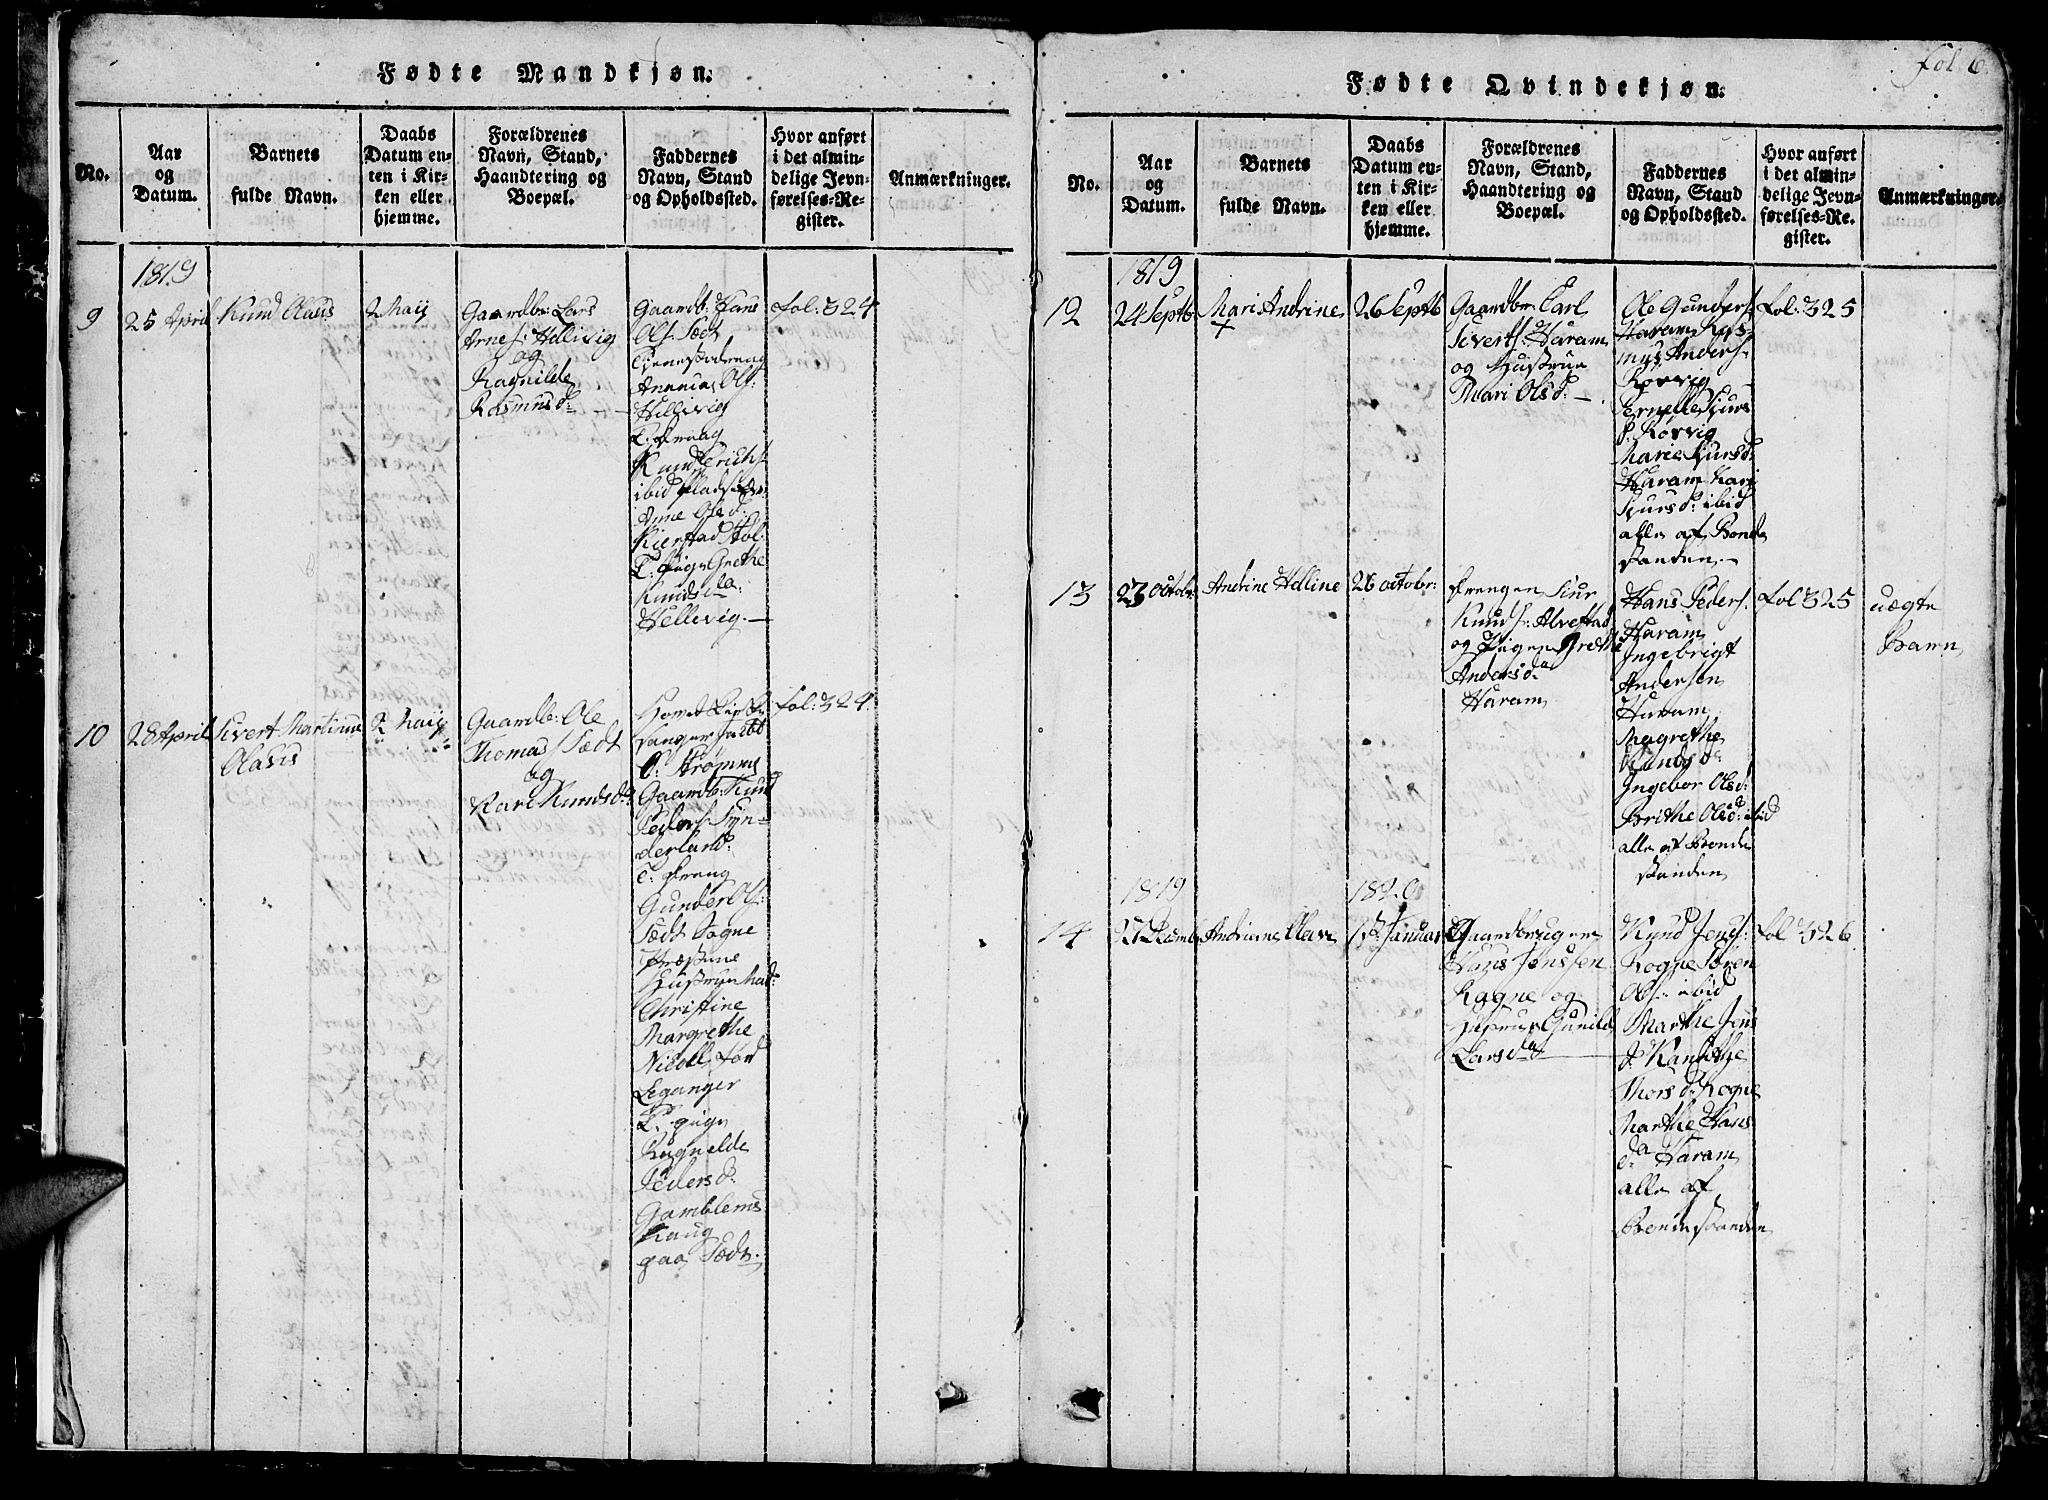 Fødte Mandkjøn.
No.
Aar
og
Datum.
Barnets
fulde Navn.
Daabs
Datum en-
ten i Kir-
ken eller
hjemme.
Forældrenes
Navn, Stand,
Haandtering og
Boepæl.
Faddernes
Navn, Stand
og Opholdssted.
Hvor anført
i det almin-
delige Jevn-
førelses-Re-
gister.
Anmærkninger.
1819
9
25 April
Knud Olaus
2 Maij
Gaardb: Lars
Arnes: Hellivig
og
Ragnilde
Rasmusd:
Gaardb: Hans
Ols: Sædt
Tjenestedreng
Ananias Ols:
Hellevig
T: dreng
Knud Erichs:
ibid
Anne Olsd:
Kierstad
T: pige Grethe
Knudsda:
Hellevig. —
fol: 324
10
28 April
Sivert Martinus
Olaus
2 Maij
Gaardb: Ole
Thomass: Sædt
og
Kari Knudsd:
sanger Jacob
O: Strømme
Gaardb: Knud
Peders: Syn-
derland:
T: dreng
Gunder Ols:
Sædt Sogne
Præstens
Hustrue Mad:
Christine
Margrethe
Leganger
T: pige
Ragnelde
Pedersd:
Gamblems
Haug
paa Sædt.
fol: 324.
fol 6.
Fødte Qvindekjøn.
No.
Aar
og
Datum.
Barnets
fulde Navn.
Daabs
Datum en-
ten i Kir-
ken eller
hjemme.
Forældrenes
Navn, Stand,
Haandtering og
Boepæl.
Faddernes
Navn, Stand
og Opholdssted.
Hvor anført
i det almin-
delige Jevn-
førelses-Re-
gister.
Anmærkninger.
1819
12
24 Septb:
Mari Andrine
+
26 Septb
Gaardbr: Carl
Siverts: Haram
og Hustrue
Mari Olsd: —
Ole Gunders:
Haram Ras-
mus Anders:
Rørvig
Pernelle Siurs
d: Rørvig
Marie Siursd:
Haram Kari
Siursd: ibid
alle af Bonde
standen. —
fol: 325
13
23 octobr:
Andrine Helline
26 octobr:
Drengen Siur
Knuds: Alvestad
og Pigen Grethe
Andersda
Haram
Hans Peders:
Haram
Ingebrigt
Andersen
Haram
Magrethe
Knudsd:
Ingebor Olsd:
Brithe Olsd: ibid
alle af Bonde
standen
fol 325
uægte
Barn
1819
1820
14
Andriane Olave
Januar
Gaardbrugeren
Hans Jenssen
Rogne og
Hustrue Gunild
Larsda
Knud Jens:
Rogne Søren
Ols: ibid
Marthe Jens
d:
Thorsd: Rogne
Marthe Hans
da Haram
alle af
Bondestanden
fol 326.